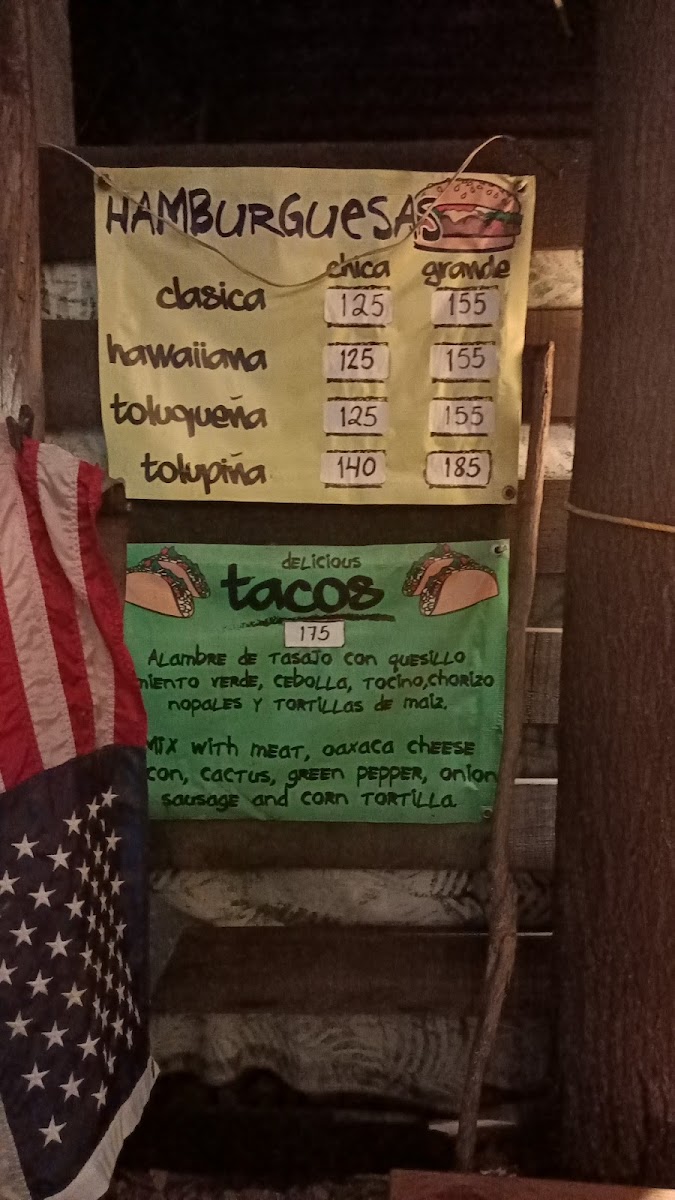 HAMBURGUESAS
chica grande
clasica 125 155
hawaiiana 125 155
toluqueña 125 155
tolupiña 140 185
DELicious
tacos
175
ALAMBRE DE TASAJO CON QUESILLO
VERDE, CEBOLLA, TOCINO, CHORIZO
NOPALES Y TORTILLAS DE MAIZ.
MIX WITH MEAT, OAXACA CHEESE
CACTUS, GREEN PEPPER, ONION
SAUSAGE AND CORN TORTILLA